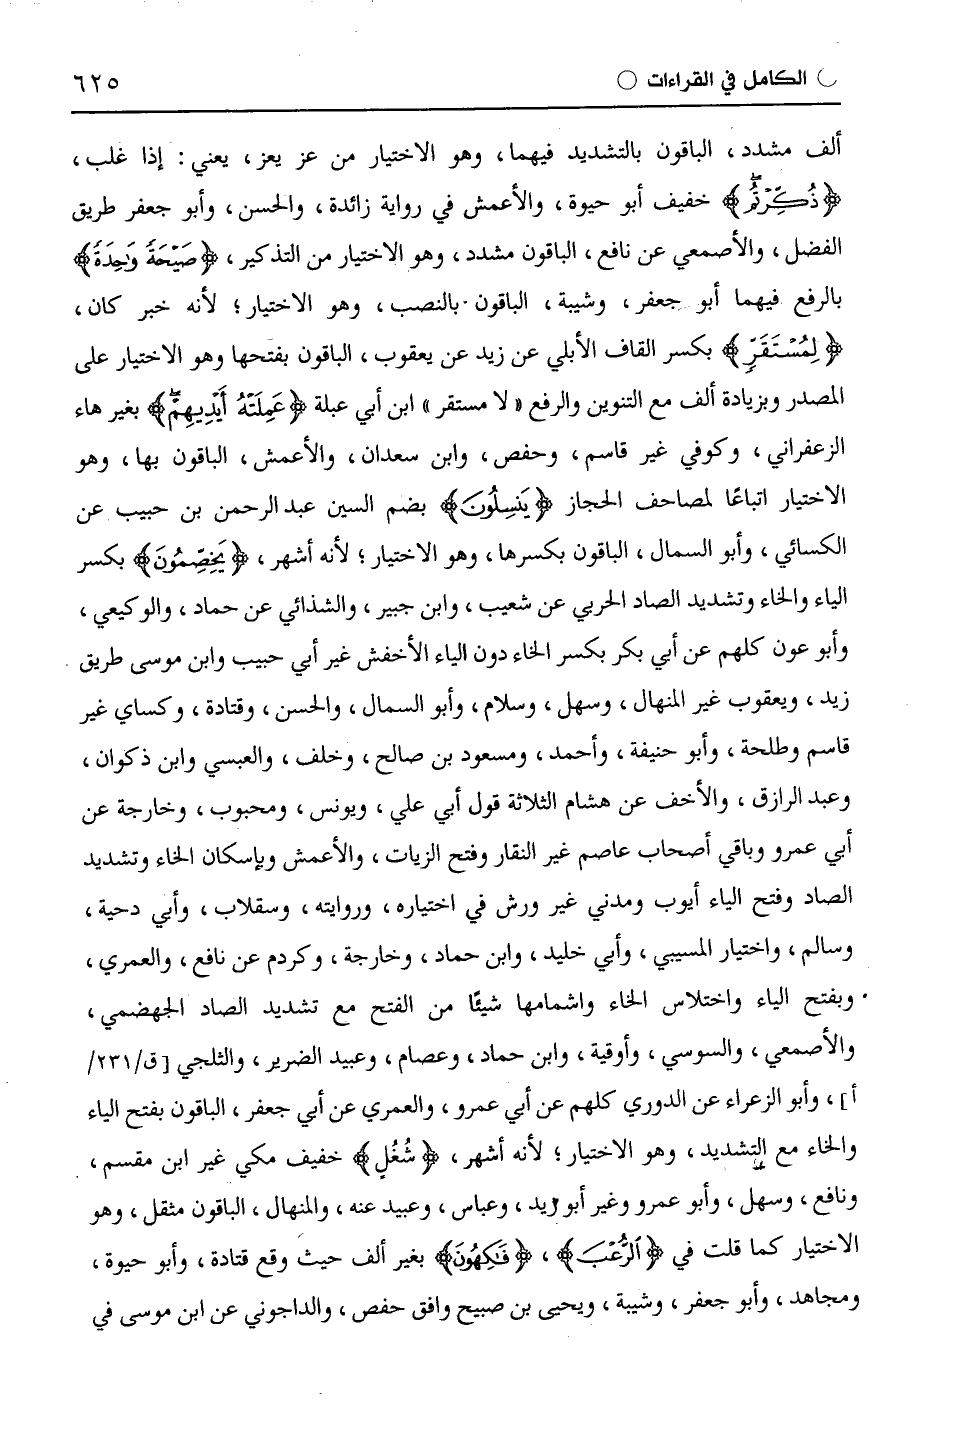 الكامل في القراءات ٦٢٥
ألف مشدد، الباقون بالتشديد فيهما، وهو الاختيار من عز يعز، يعني: إذا غلب،
﴿ذُكِّرْتُمْ﴾ خفيف أبو حيوة، والأعمش في رواية زائدة، والحسن، وأبو جعفر طريق
الفضل، والأصمعي عن نافع، الباقون مشدد، وهو الاختيار من التذكير، ﴿صَيْحَةً وَاحِدَةً﴾
بالرفع فيهما أبو جعفر، وشيبة، الباقون بالنصب، وهو الاختيار؛ لأنه خبر كان،
﴿لِمُسْتَقَرٍّ﴾ بكسر القاف الأبلي عن زيد عن يعقوب، الباقون بفتحها وهو الاختيار على
المصدر وبزيادة ألف مع التنوين والرفع «لا مستقر» ابن أبي عبلة ﴿عَمِلَتْهُ أَيْدِيهِمْ﴾ بغير هاء
الزعفراني، وكوفي غير قاسم، وحفص، وابن سعدان، والأعمش، الباقون بها، وهو
الاختيار اتباعًا لمصاحف الحجاز ﴿يَنسِلُونَ﴾ بضم السين عبد الرحمن بن حبيب عن
الكسائي، وأبو السمال، الباقون بكسرها، وهو الاختيار؛ لأنه أشهر، ﴿يَخِصِّمُونَ﴾ بكسر
الياء والخاء وتشديد الصاد الحربي عن شعيب، وابن جبير، والشذائي عن حماد، والوكيعي،
وأبو عون كلهم عن أبي بكر بكسر الخاء دون الياء الأخفش غير أبي حبيب وابن موسى طريق
زيد، ويعقوب غير المنهال، وسهل، وسلام، وأبو السمال، والحسن، وقتادة، وكساي غير
قاسم وطلحة، وأبو حنيفة، وأحمد، ومسعود بن صالح، وخلف، والعبسي وابن ذكوان،
وعبد الرازق، والأخف عن هشام الثلاثة قول أبي علي، ويونس، ومحبوب، وخارجة عن
أبي عمرو وباقي أصحاب عاصم غير النقار وفتح الزيات، والأعمش وبإسكان الخاء وتشديد
الصاد وفتح الياء أيوب ومدني غير ورش في اختياره، وروايته، وسقلاب، وأبي دحية،
وسالم، واختيار المسيبي، وأبي خليد، وابن حماد، وخارجة، وكردم عن نافع، والعمري،
وبفتح الياء واختلاس الخاء واشمامها شيئًا من الفتح مع تشديد الصاد الجهضمي،
والأصمعي، والسوسي، وأوقية، وابن حماد، وعصام، وعبيد الضرير، والثلجي [ق/٢٣١/
أ]، وأبو الزعراء عن الدوري كلهم عن أبي عمرو، والعمري عن أبي جعفر، الباقون بفتح الياء
والخاء مع التشديد، وهو الاختيار؛ لأنه أشهر، ﴿شُغُلٍ﴾ خفيف مكي غير ابن مقسم،
ونافع، وسهل، وأبو عمرو وغير أبو زيد، وعباس، وعبيد عنه، والمنهال، الباقون مثقل، وهو
الاختيار كما قلت في ﴿الرُّعْبَ﴾، ﴿فَاكِهُونَ﴾ بغير ألف حيث وقع قتادة، وأبو حيوة،
ومجاهد، وأبو جعفر، وشيبة، ويحيى بن صبيح وافق حفص، والداجوني عن ابن موسى في